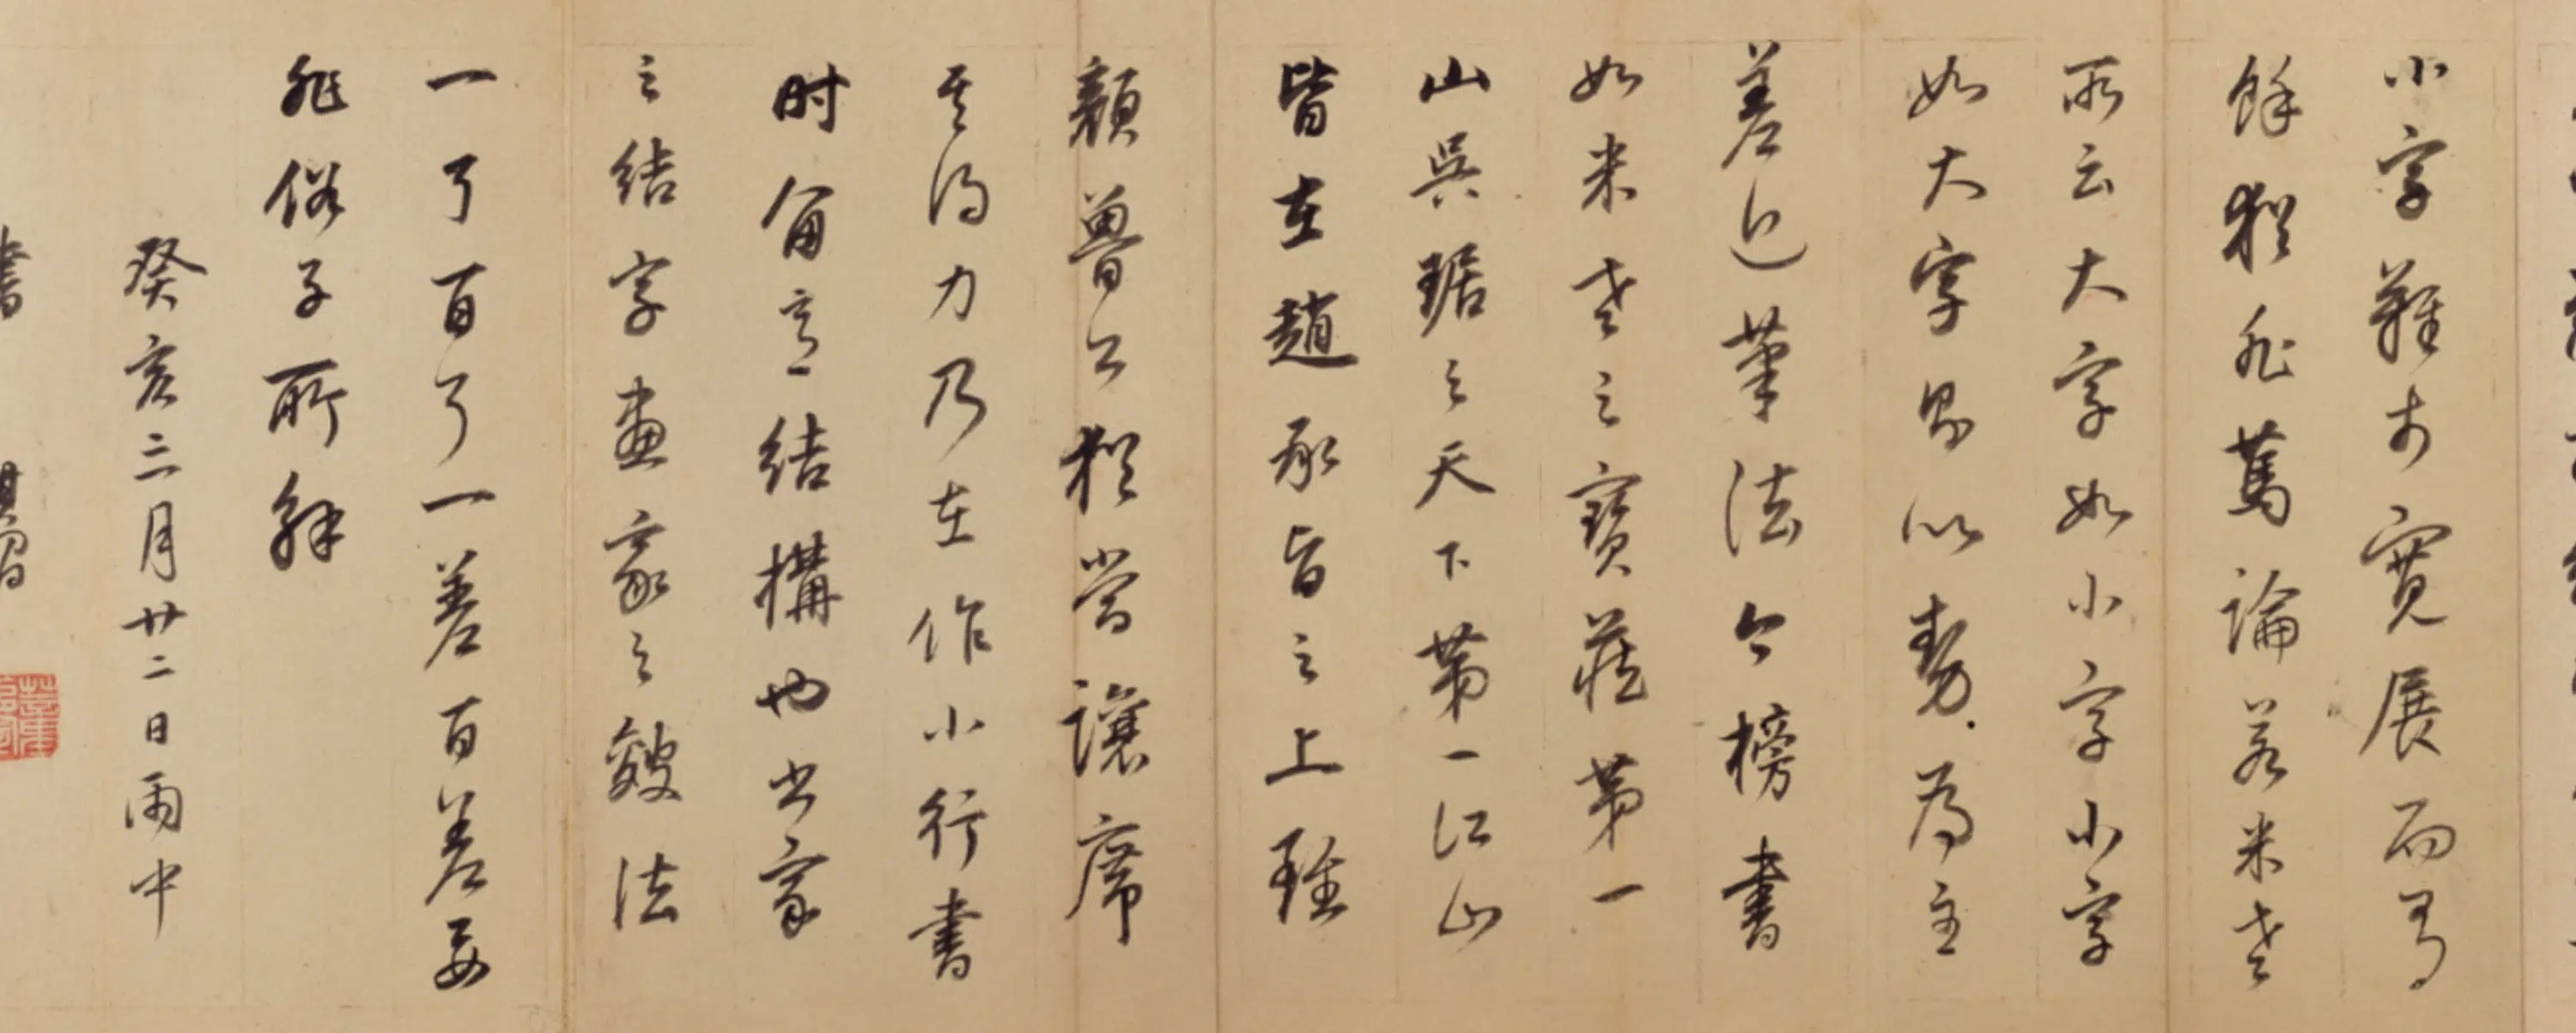 小字難于寬展而有
餘猶非篤論若米老
所云大字如小字小字
如大字則以勢為主
差近筆法今榜書
如米老之寶藏第一
山吳琚之天下第一江山
皆在趙承旨之上雖
顏魯公猶當讓席
其得力乃在作小行書
時留意結構也書家
之結字畫家之皴法
一了百了一差百差要
非俗子所解
癸亥三月廿二日雨中
書